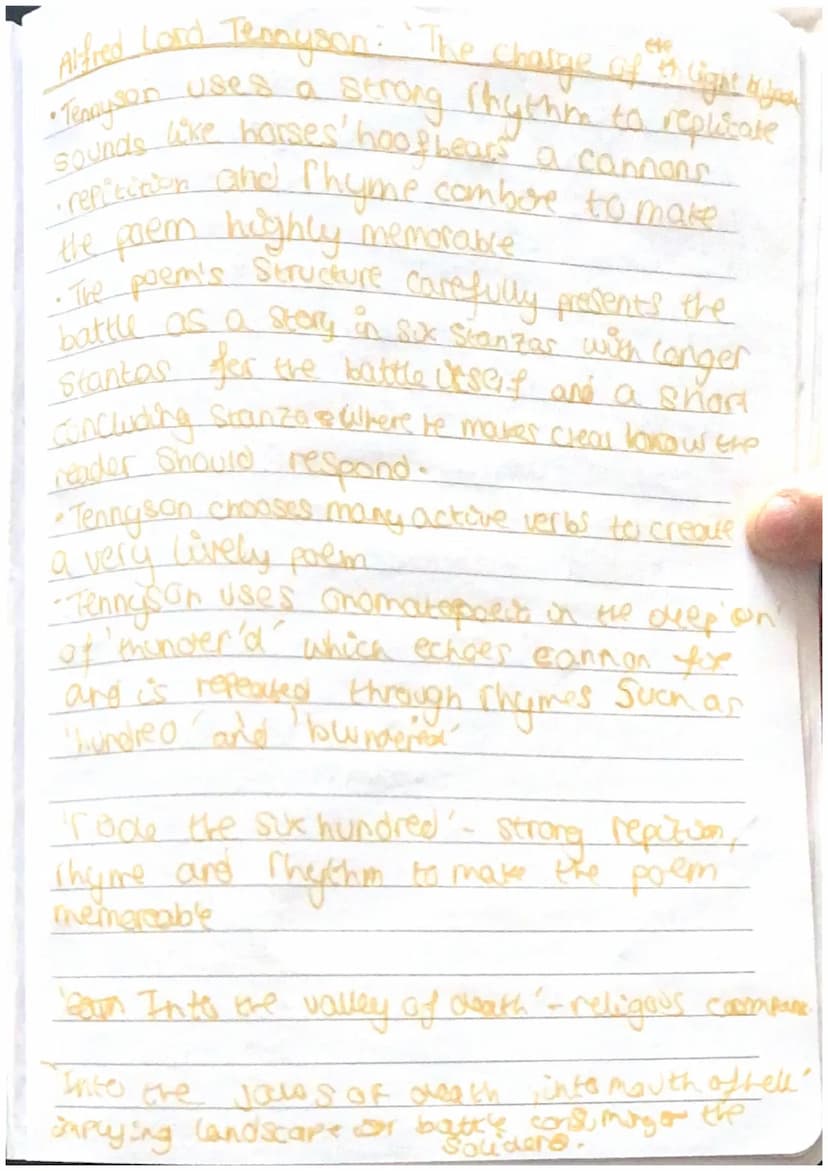 Alfred Lord Tennyson: 'The Charge of the Light
• Tennyson uses a strong rhythm to replicate
sounds like horses' hoofbears a cannons
• repitition and rhyme combine to make
the poem highly memorable
• The poem's structure carefully presents the
battle as a story in six stanzas with longer
stantas for the battle itself and a short
concluding stanza where he makes clear how the
reader should respond.
• Tennyson chooses many active verbs to create
a very lively poem
• Tennyson uses in the deep 'on'
of 'thunder'd' which echoes cannon fire
and is repeated through rhymes such as
'hundred' and 'blundered'
'rode the six hundred' - strong repition,
rhyme and rhythm to make the poem
memorable
Into the valley of death' - religous
'Into the jaws of death, into mouth of hell'
implying landscape or battle consuming the
soliders.